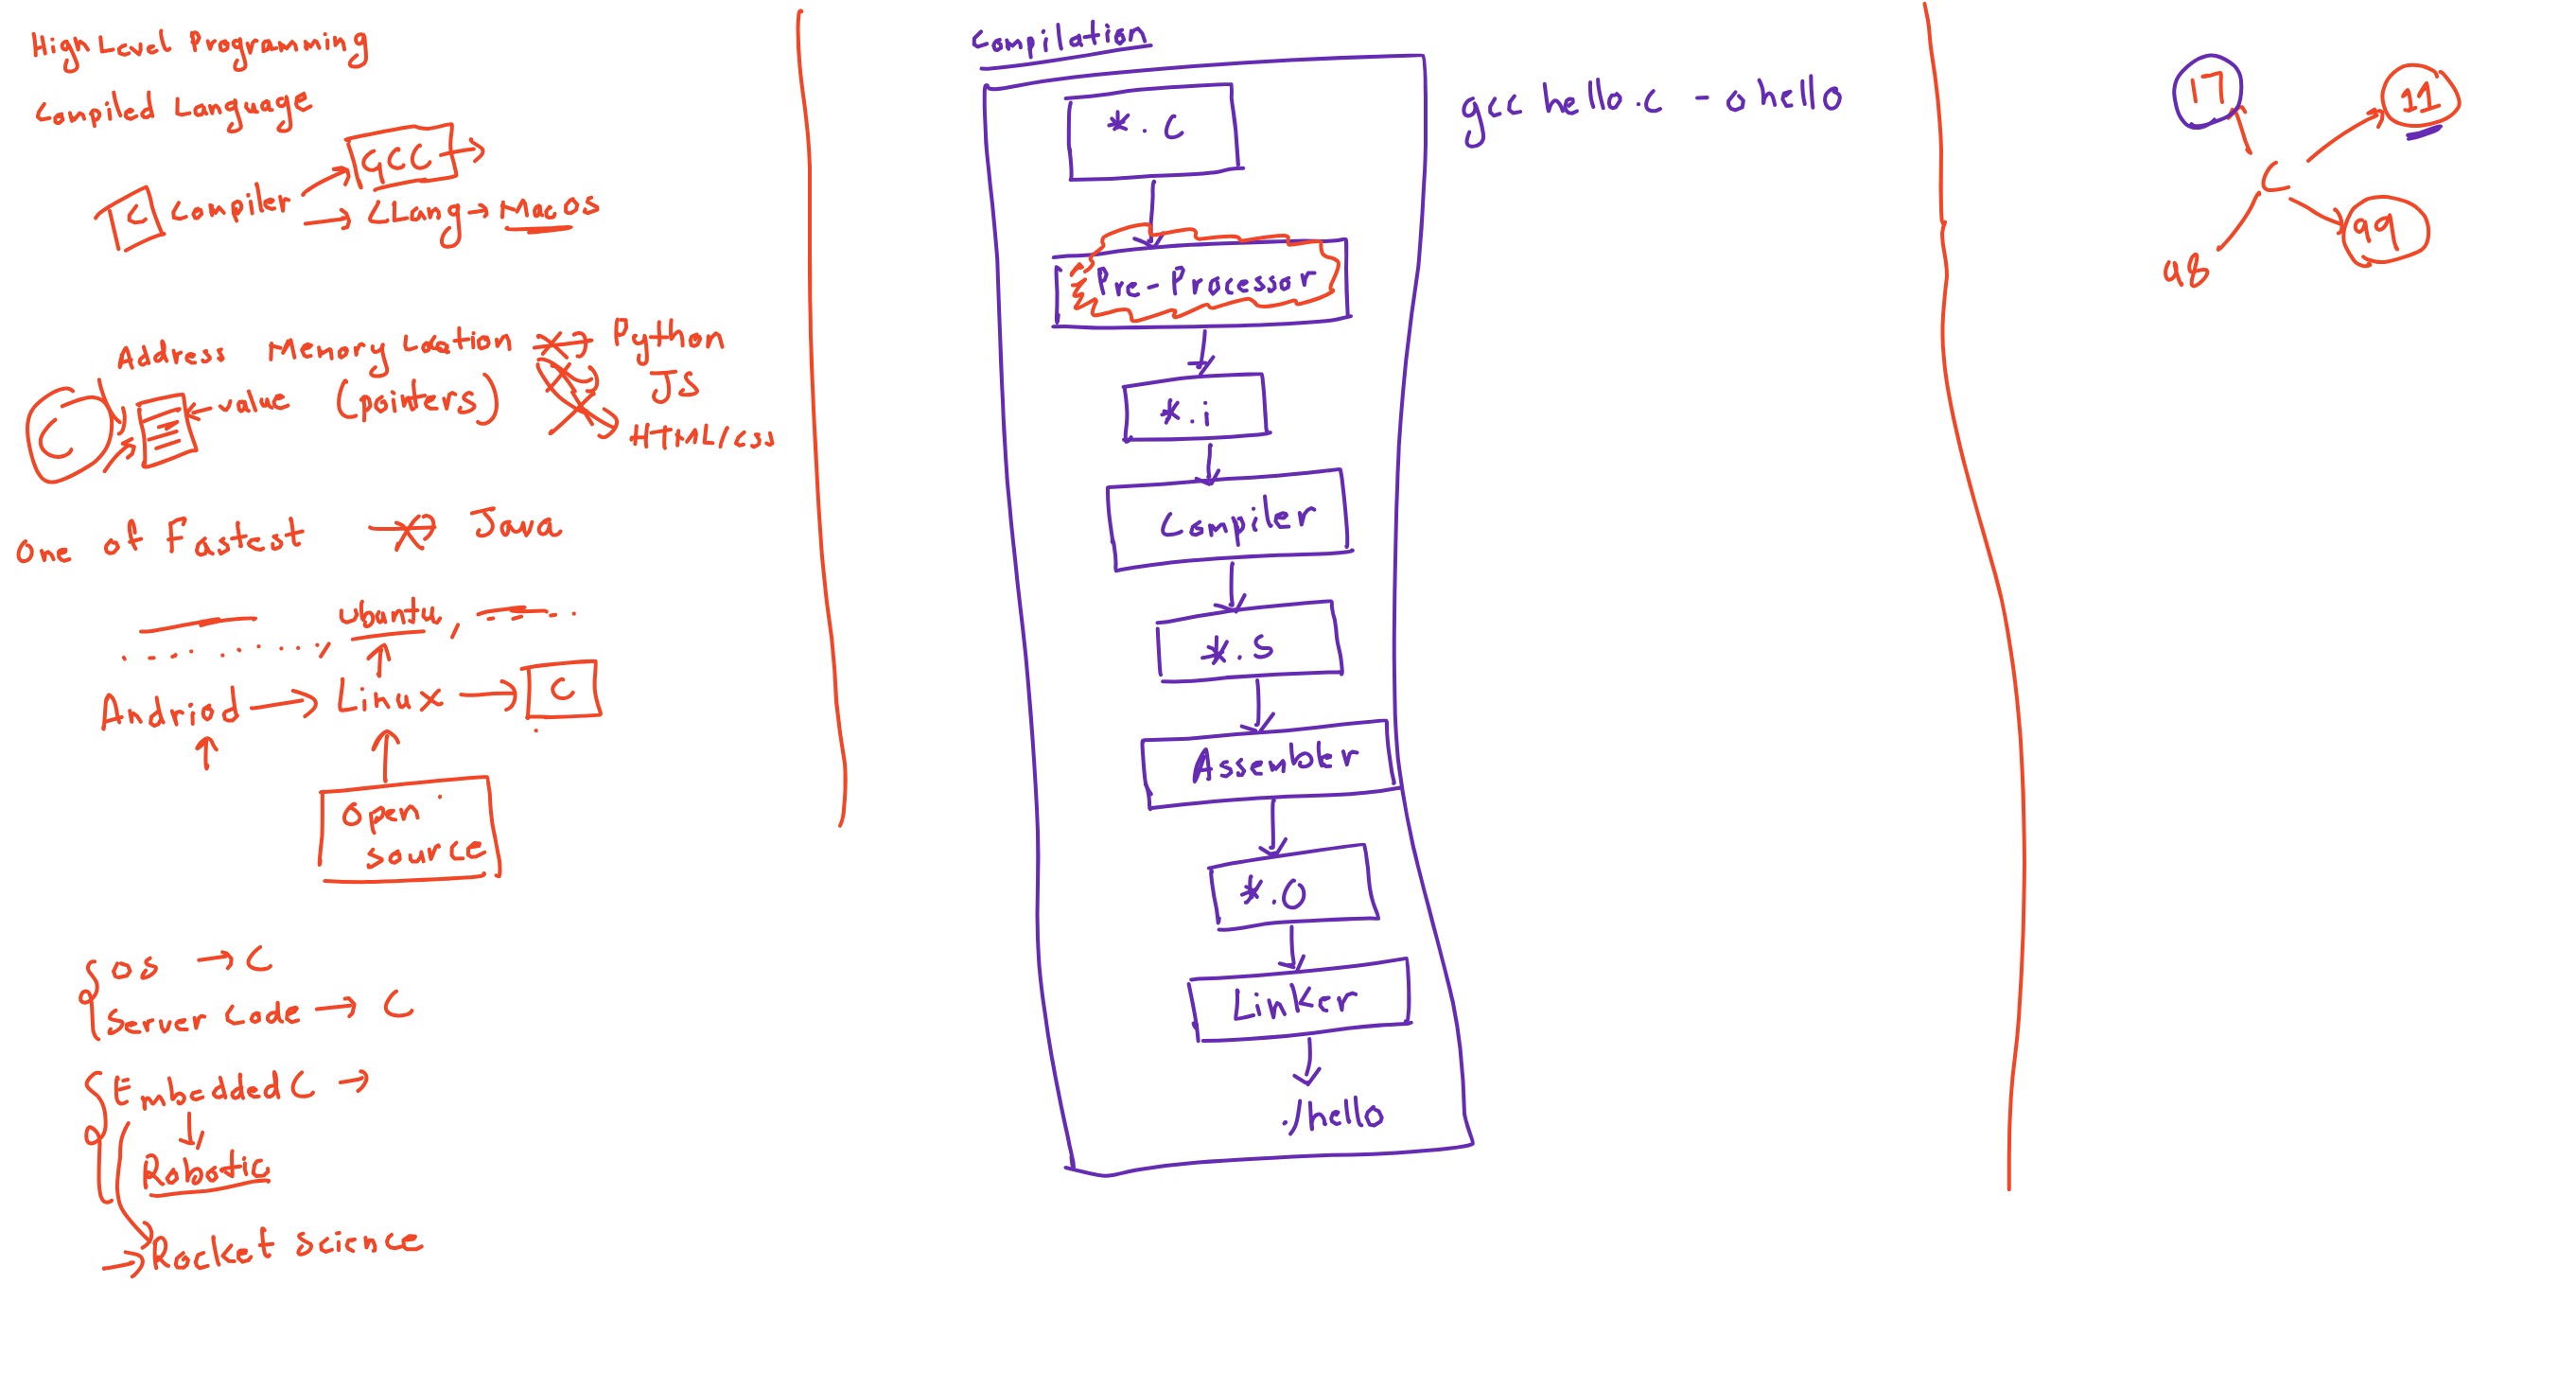 High Level Programming
Compiled Language
C Compiler
GCC
CLang → MacOS
Address Memory Location
value (pointers)
C
Python
JS
HTML/CSS
One of Fastest → Java
Ubuntu,
Andriod → Linux → C
Open
source
OS → C
Server Code → C
Embedded C →
Robotic
→ Rocket Science
Compilation
*.c
Pre-Processor
*.i
Compiler
*.s
Assembler
*.o
Linker
./hello
gcc hello.c -o hello
17
11
C
98
99